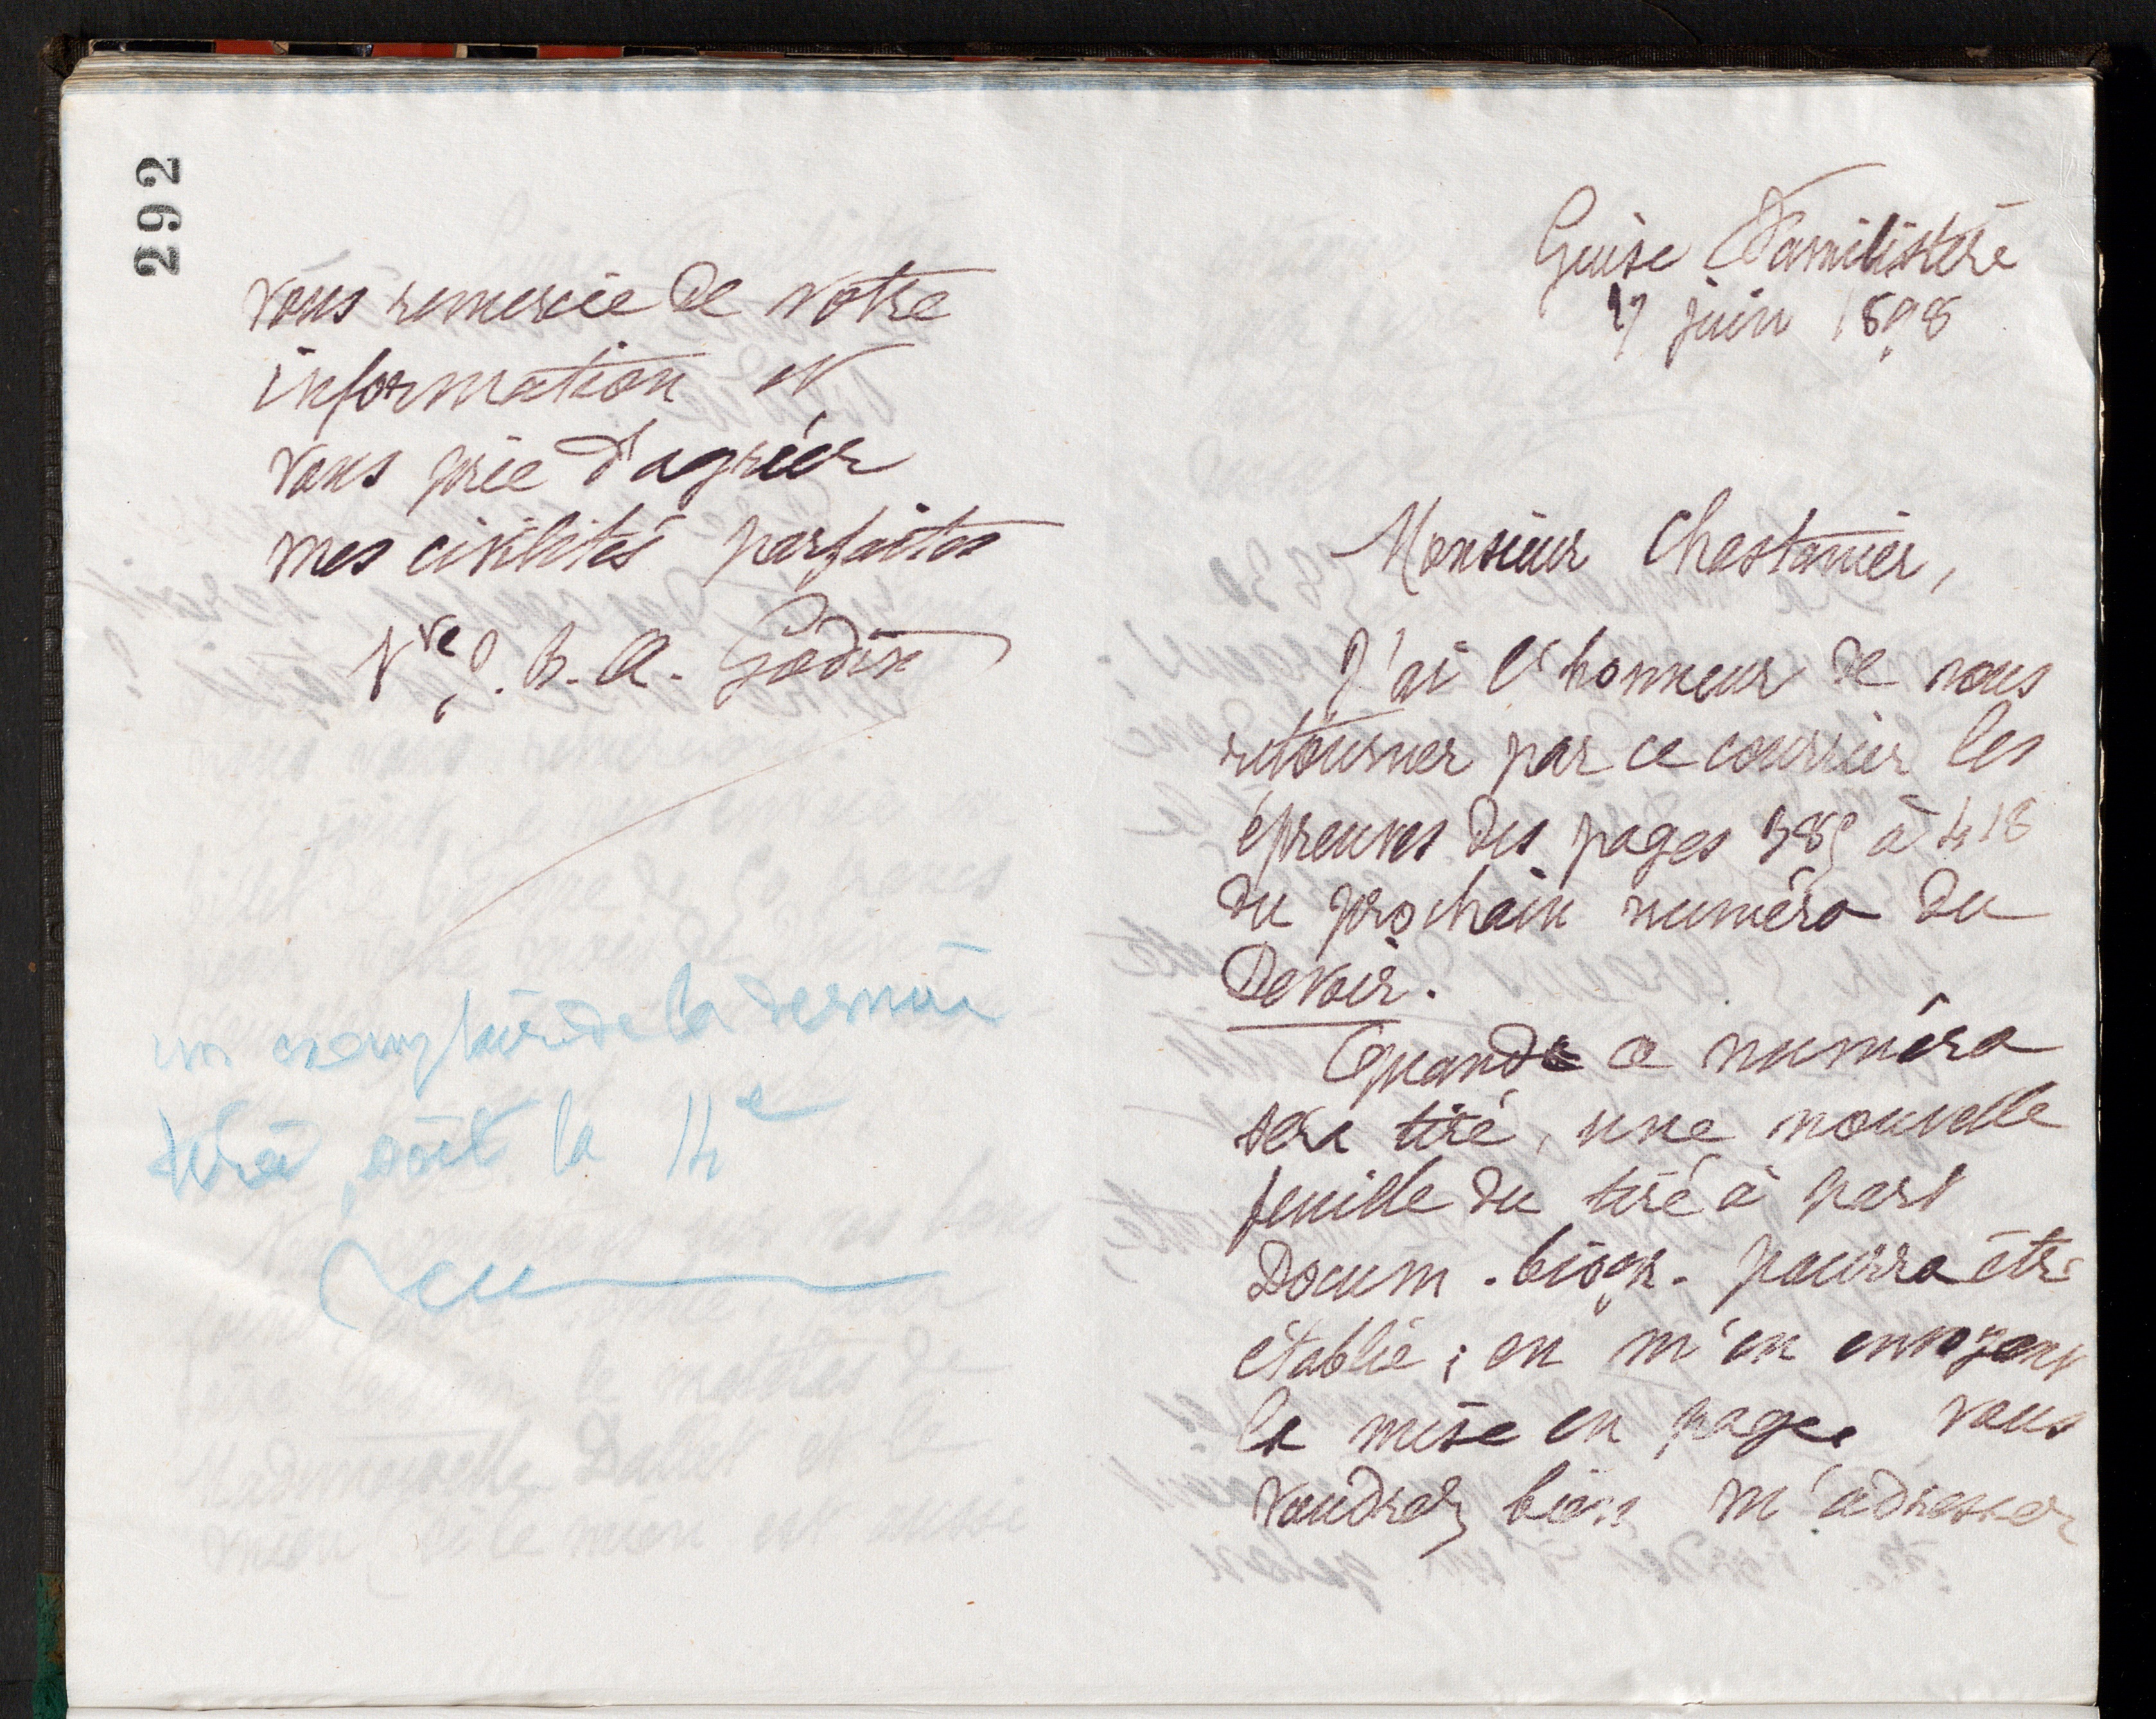 292
vous remercie de votre
information et
vous prie d'agréer
mes civilités parfaites
Vve J. B. A. Godin
un exemplaire de la dernière
tirée, soit la 14e
Guise Familistère
27 juin 1898
Monsieur Chastanier,
J'ai l'honneur de vous
retourner par ce courrier les
épreuves des pages 385 à 418
du prochain numéro du
Devoir.
Quand ce numéro
sera tiré, une nouvelle
feuille du tiré à part
Docum. biogr. pourra être
établie ; en m'en envoyant
la mise en page, vous
voudrez bien m'adresser